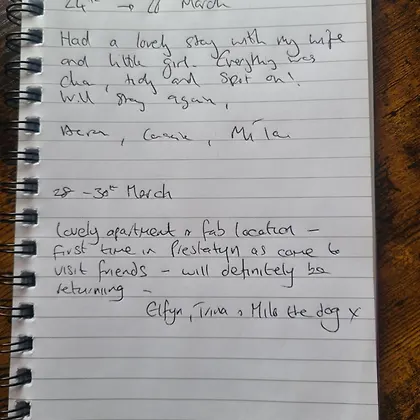 24th → 26 March
Had a lovely stay with my wife
and little girl. Everything was
clean, tidy and spot on!
Will stay again,
Míla
28 - 30th March
lovely apartment & fab location -
first time in Prestatyn as come to
visit friends - will definitely be
returning -
Elfyn, Trina & Milo the dog x